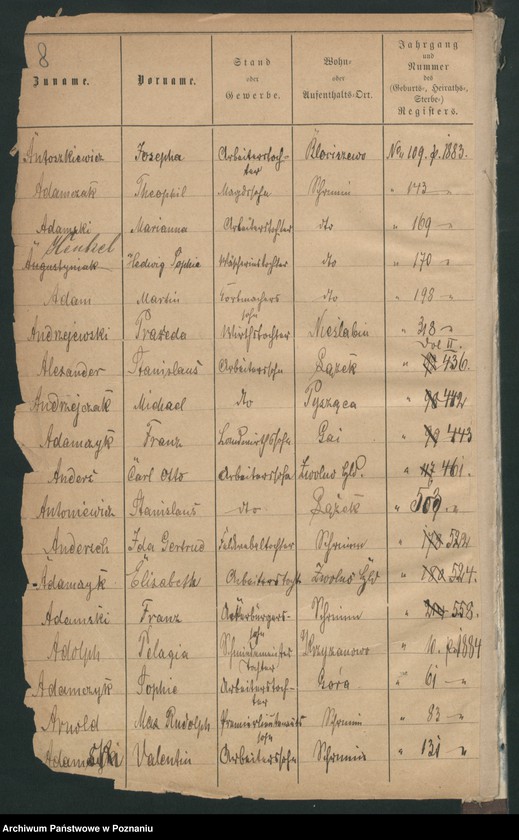 8
Zuname. Vorname. Stand oder Gewerbe. Wohn- oder Aufenthalts-Ort. Jahrgang und Nummer des (Geburts-, Heiraths-, Sterbe-) Registers.
Antoszkiewicz Josepha Arbeiterstochter No. 109. p. 1883.
Adamczak Theophil Magdsohn Schrimm " 143 "
Adamski Marianna Arbeiterstochter dto " 169 "
Henkel
Augustyniak Hedwig Sophie dto " 170 "
Adam Martin dto " 198 "
Andrzejewski Praxeda Wirthstochter Nieslabin " 313 "
Vol II.
Alexander Stanislaus Arbeiterssohn " 436.
Andrzejczak Michael dto Pysząca " 442
Adamczyk Franz Landwirthssohn Gai " 443
Anders Carl Otto Arbeiterssohn Zwolno Hld. " 461.
Antoniewicz Stanislaus dto " 509. "
Andersch Ida Gertrud Feldwebeltochter Schrimm " 522
Adamczyk Elisabeth Arbeiterstocht Zwolno Hld " 524.
Adamski Franz Ackerbürgerssohn Schrimm " 558.
Adolph Pelagia Schmiedemeisterstochter " 10. p. 1884
Adamczyk Sophie Arbeiterstochter Góra " 61 "
Arnold Max Rudolph Premierlieutenantssohn Schrimm " 83 "
Valentin Arbeiterssohn Schrimm " 131 "
Archiwum Państwowe w Poznaniu